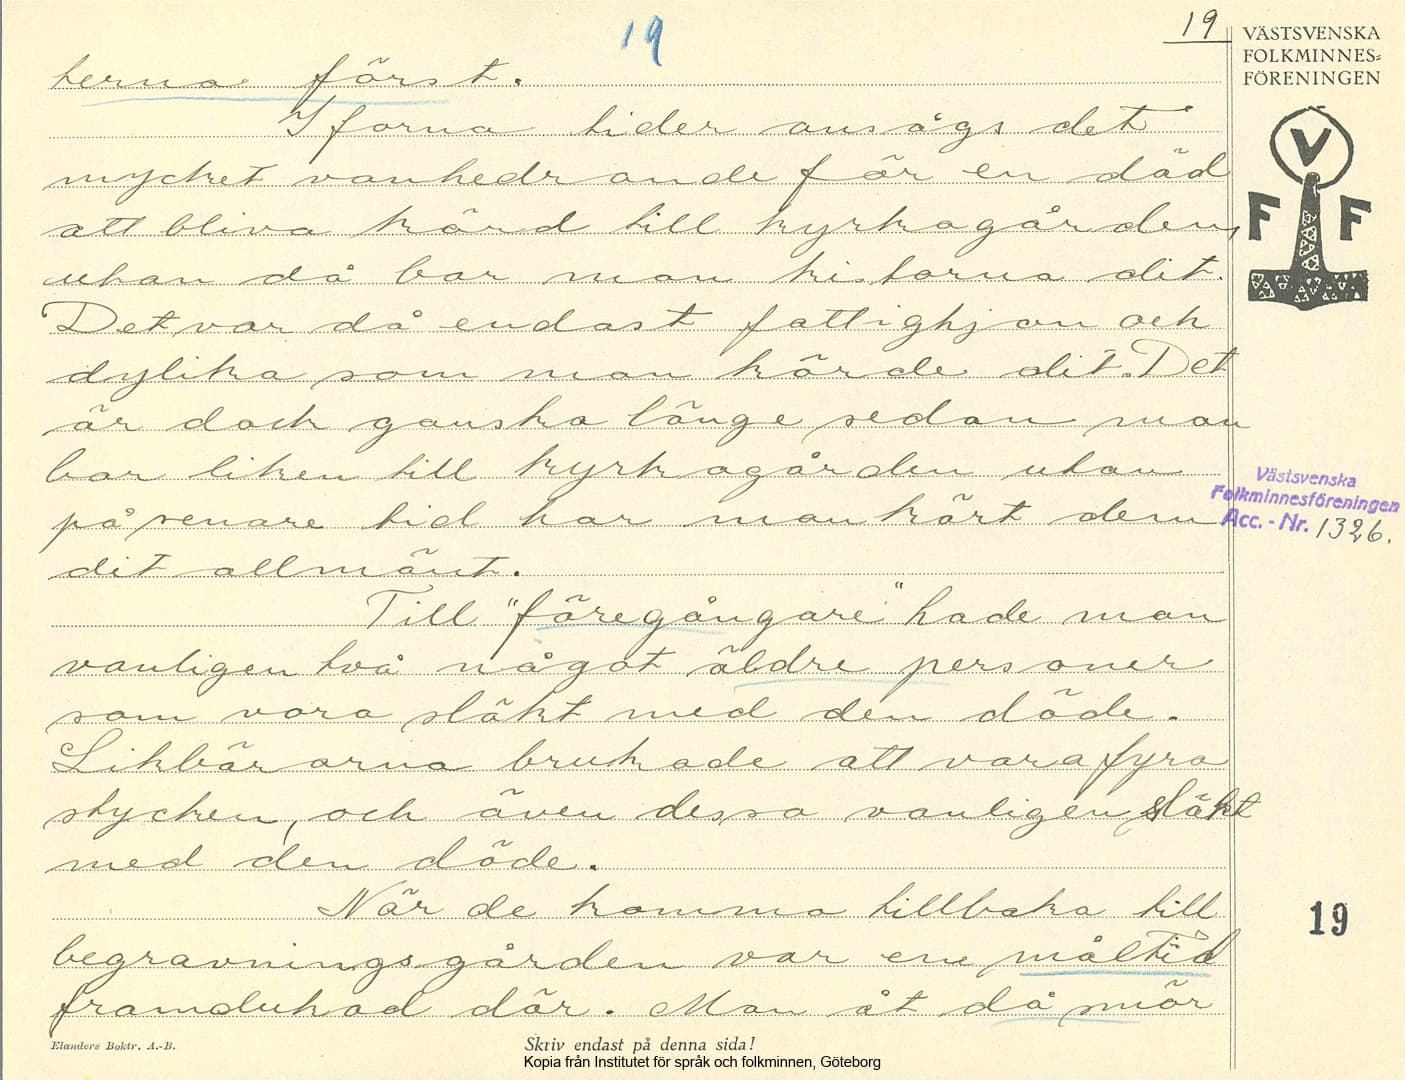 19
19
VÄSTSVENSKA
FOLKMINNES=
FÖRENINGEN
V
F F
terna först.
I forna tider ansågs det
mycket vanhedrande för en död
att bliva körd till kyrkogården,
utan då bar man kistorna dit.
Det var då endast fattighjon och
dylika som man körde dit. Det
är dock ganska länge sedan man
bar liken till kyrkogården utan
på senare tid har man kört dem
dit allmänt.
Västsvenska
Folkminnesföreningen
Acc. - Nr. 1326.
Till "föregångare" hade man
vanligen två något äldre personer
som voro släkt med den döde.
Likbärarna brukade att vara fyra
stycken, och även dessa vanligen släkt
med den döde.
När de kommo tillbaka till
begravningsgården var en måltid
framdukad där. Man åt då smör
19
Elanders Boktr. A.-B.
Skriv endast på denna sida!
Kopia från Institutet för språk och folkminnen, Göteborg